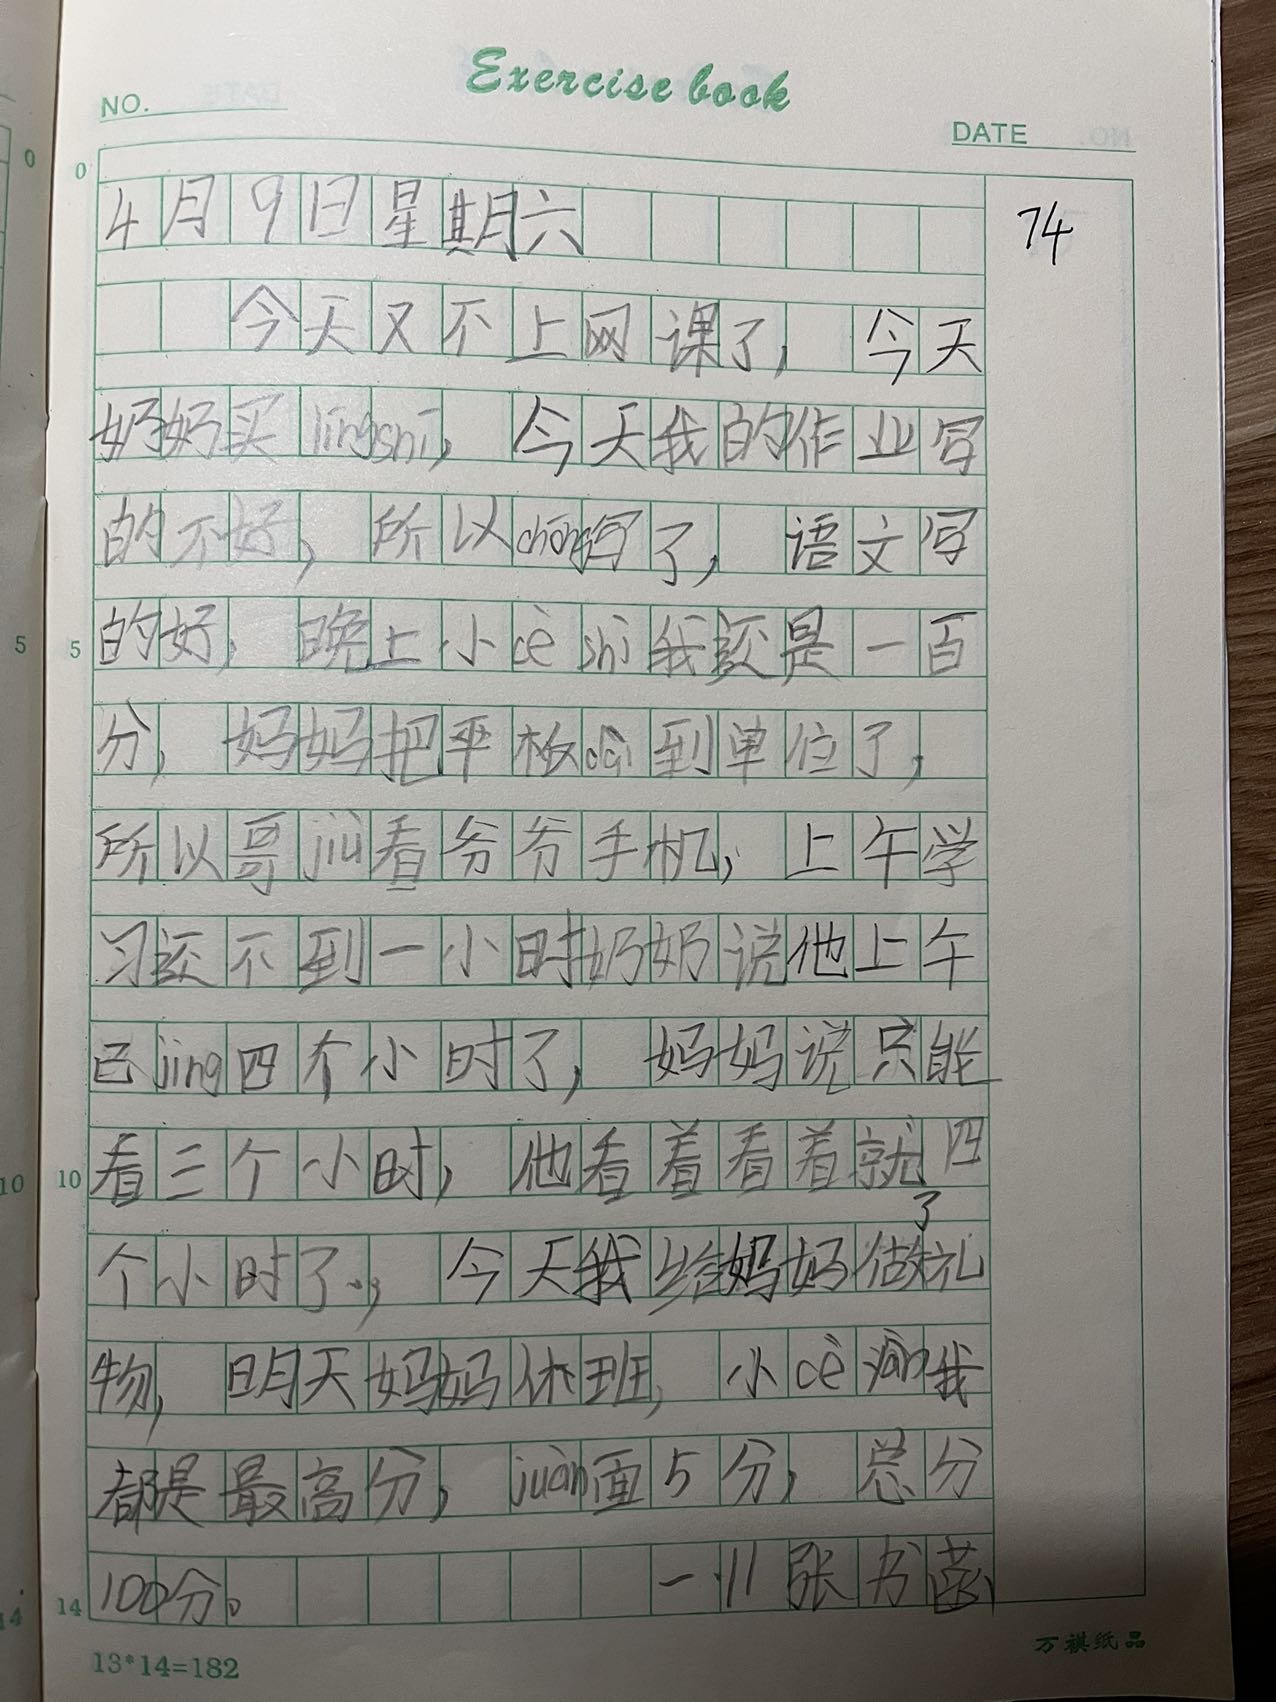 Exercise book
NO.
DATE
0
0
4月9日星期六
74
今天又不上网课了，今天
奶奶买jingshi，今天我的作业写
的不好，所以chóng写了，语文写
5
5
的好，晚上小cè shì我还是一百
分，妈妈把平板dài到单位了，
所以哥jiù看爷爷手机，上午学
习还不到一小时奶奶说他上午
已jing四个小时了，妈妈说只能
10
10
看三个小时，他看着看着就四
了
个小时了.，今天我给妈妈做礼
物，明天妈妈休班，小cè yàn我
都是最高分，juàn面5分，总分
14
14
100分。 一.11张书菡
13*14=182
万祺纸品